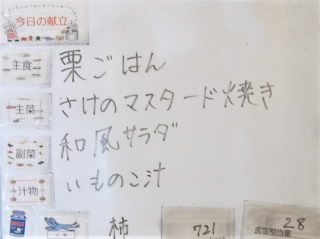 今日の献立
主食 栗ごはん
主菜 さけのマスタード焼き
副菜 和風サラダ
汁物 いものこ汁
柿 721 2.8